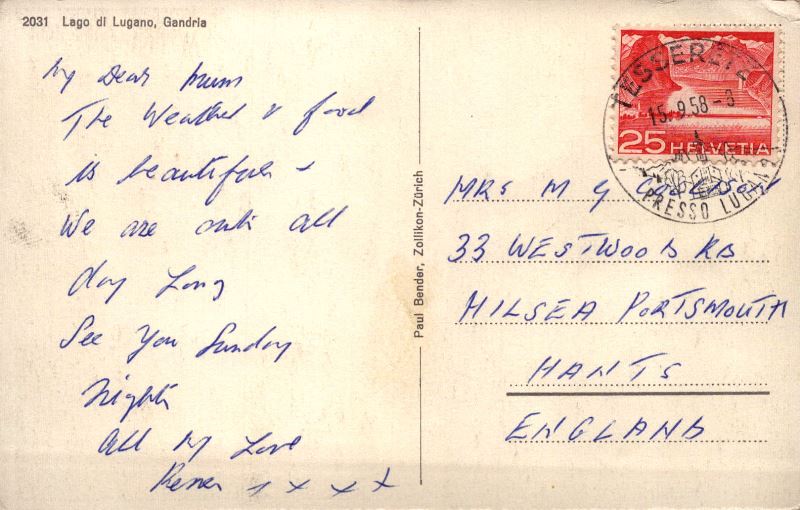 2031 Lago di Lugano, Gandria
My Dear Mum
The Weather & food
is beautiful &
We are out all
day Long
See You Sunday
Night
All My Love
x x x x
Paul Bender, Zollikon-Zürich
TESSERETE
15.9.58-9
PRESSO LUGANO
25 HELVETIA
MRS M G
33 WESTWOOD RD
HILSEA PORTSMOUTH
HANTS
ENGLAND